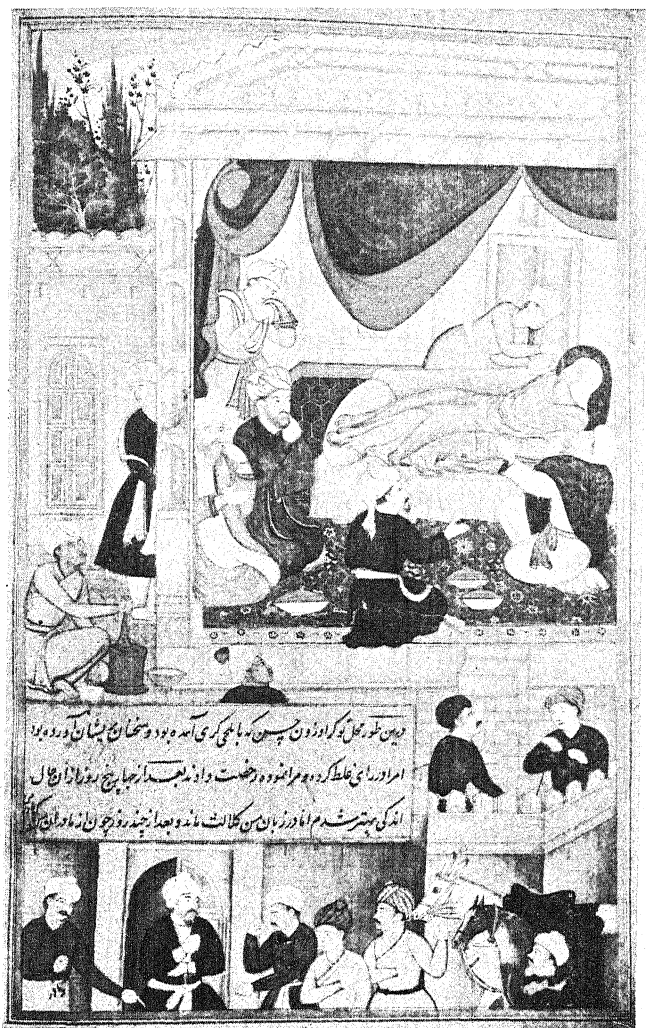 درین طور محل نوکر اوزون حسن که با یلچی کری آمده بود و سخنان پریشان آورده بود
امرا در رای غلط کرده و مرا نموده رخصت دادند بعد از چهار پنج روز ازان حال
اندکی بهتر شدم اما در زبان من کلالت ماند و بعد از چند روز چون از مادر ان من